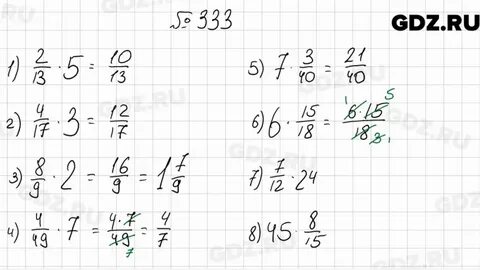 № 333
GDZ.RU
1) 2/13 · 5 = 10/13
2) 4/17 · 3 = 12/17
3) 8/9 · 2 = 16/9 = 1 7/9
4) 4/49 · 7 = 4·7/49 7 = 4/7
5) 7 · 3/40 = 21/40
6) 6 · 15/18 = 1 6·15 5/18 3 1
7) 7/12 · 24
8) 45 · 8/15